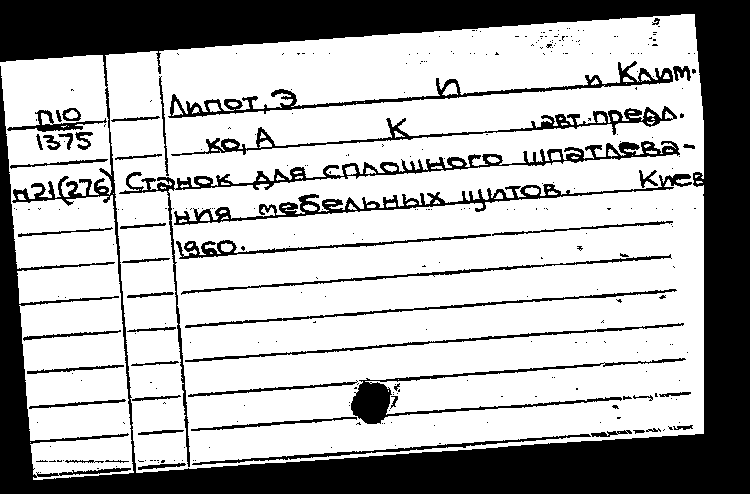 Липот, Э И и Клим-
П10
1375
ко, А К ,авт. предл.
п21(276) Станок для сплошного шпатлева-
ния мебельных щитов. Киев
1960.